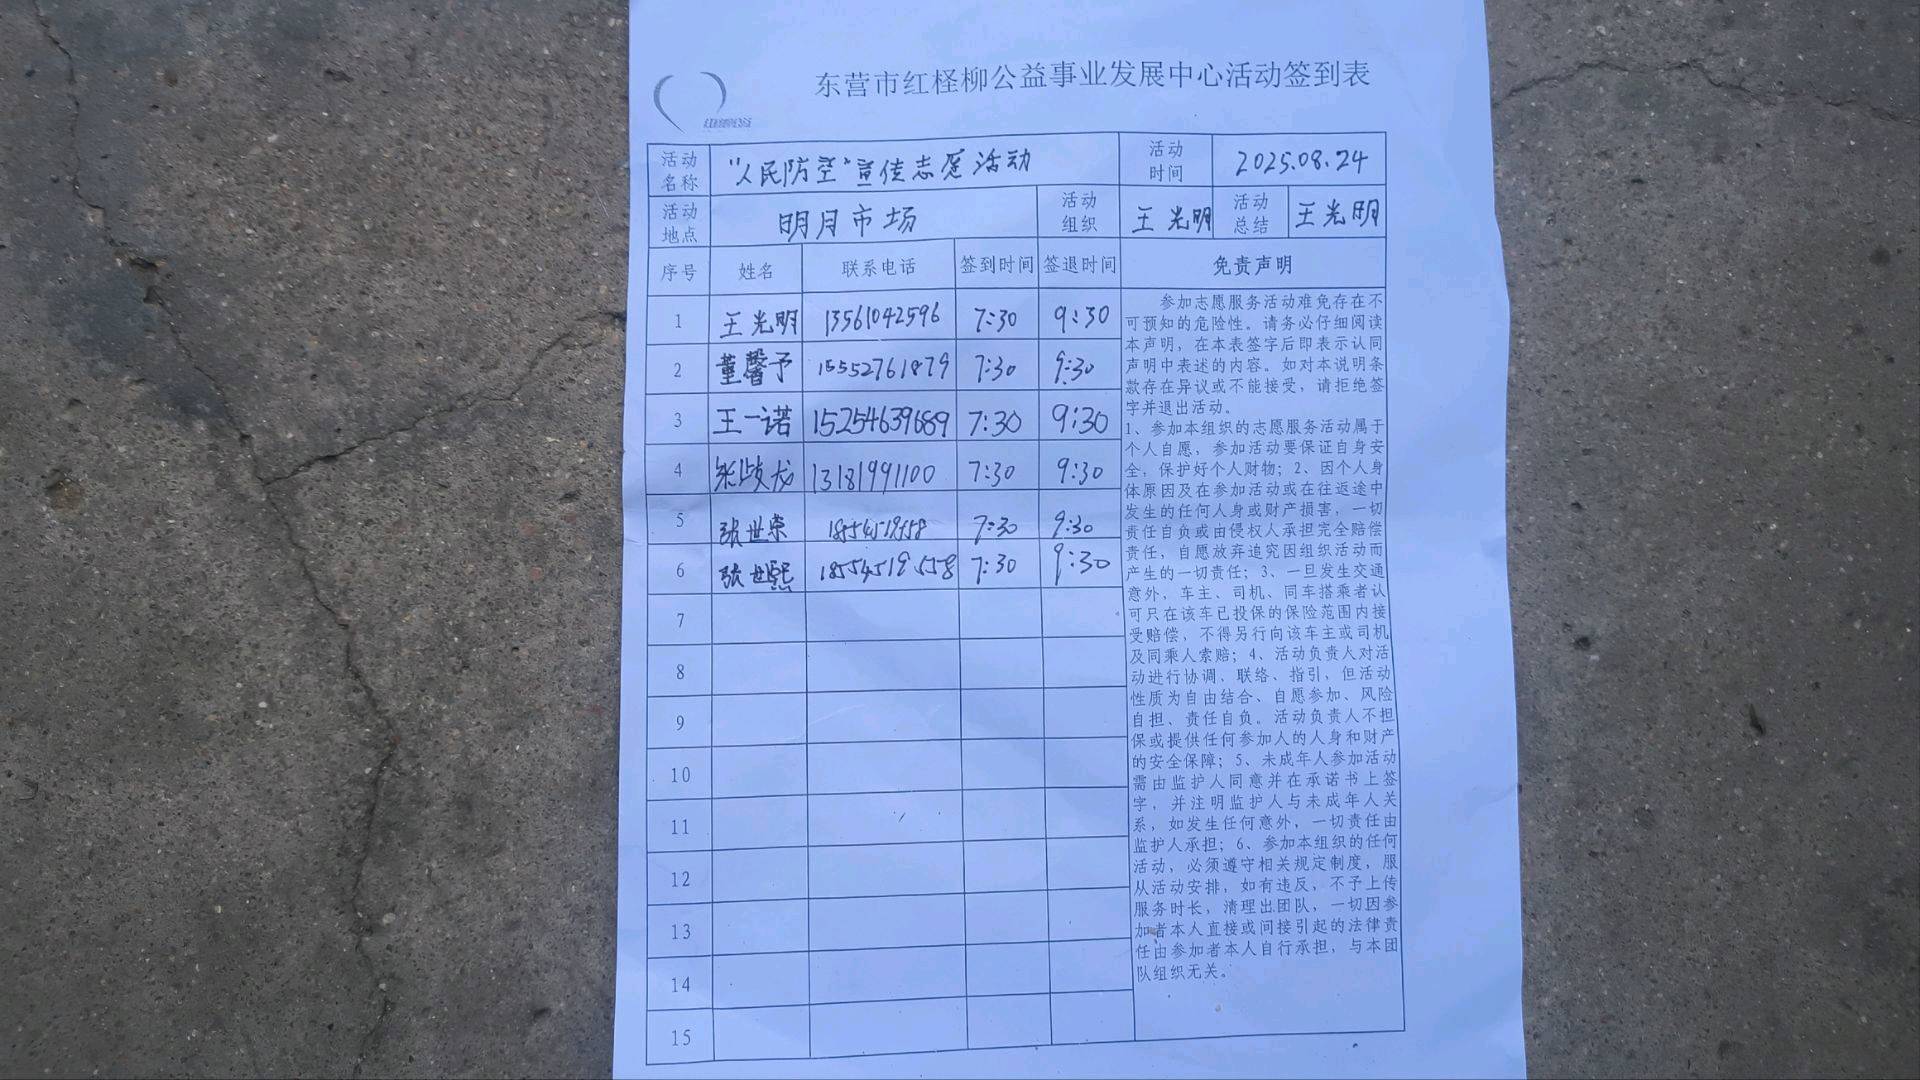 东营市红柽柳公益事业发展中心活动签到表
活动名称 “人民防空”宣传志愿活动 活动时间 2025.08.24
活动地点 明月市场 活动组织 王光明 活动总结 王光明
序号 姓名 联系电话 签到时间 签退时间 免责声明
1 王光明 13561042596 7:30 9:30
2 董馨予 15552761879 7:30 9:30
3 王一诺 15254639689 7:30 9:30
4 13181991100 7:30 9:30
5 张世荣 7:30 9:30
6 张世熙 18554519558 7:30 9:30
7
8
9
10
11
12
13
14
15
参加志愿服务活动难免存在不
可预知的危险性。请务必仔细阅读
本声明，在本表签字后即表示认同
声明中表述的内容。如对本说明条
款存在异议或不能接受，请拒绝签
字并退出活动。
1、参加本组织的志愿服务活动属于
个人自愿，参加活动要保证自身安
全，保护好个人财物；2、因个人身
体原因及在参加活动或在往返途中
发生的任何人身或财产损害，一切
责任自负或由侵权人承担完全赔偿
责任，自愿放弃追究因组织活动而
产生的一切责任；3、一旦发生交通
意外，车主、司机、同车搭乘者认
可只在该车已投保的保险范围内接
受赔偿，不得另行向该车主或司机
及同乘人索赔；4、活动负责人对活
动进行协调、联络、指引，但活动
性质为自由结合、自愿参加、风险
自担、责任自负。活动负责人不担
保或提供任何参加人的人身和财产
的安全保障；5、未成年人参加活动
需由监护人同意并在承诺书上签
字，并注明监护人与未成年人关
系，如发生任何意外，一切责任由
监护人承担；6、参加本组织的任何
活动，必须遵守相关规定制度，服
从活动安排，如有违反，不予上传
服务时长，清理出团队，一切因参
加者本人直接或间接引起的法律责
任由参加者本人自行承担，与本团
队组织无关。